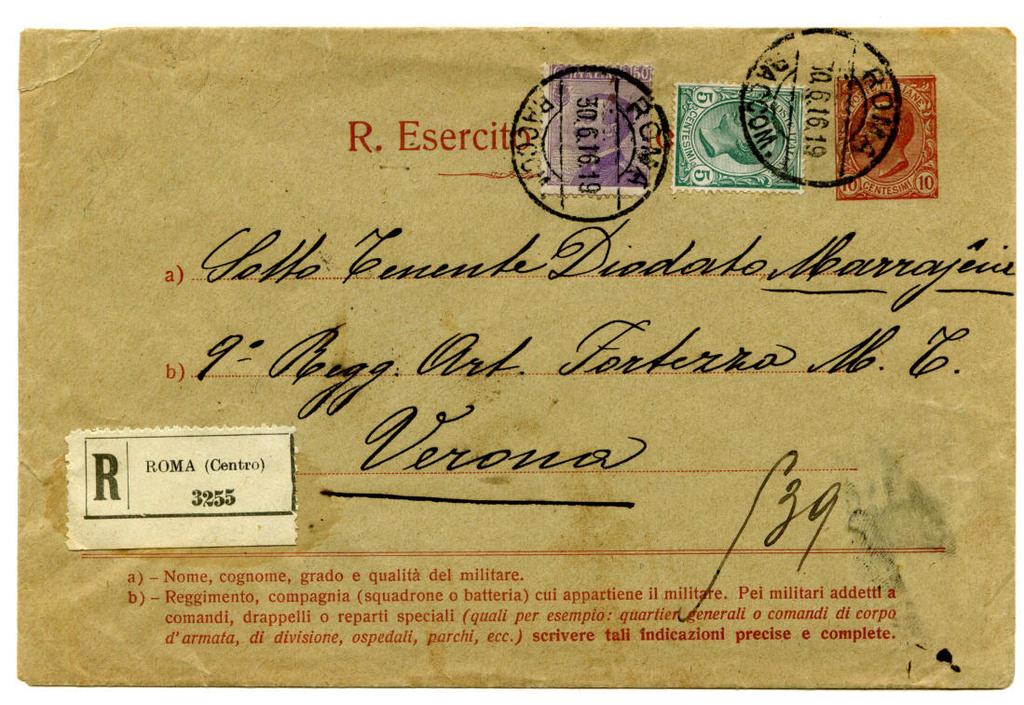 R. Esercito
50
ROMA
RACCOM.
30.6.16.19
5 CENTESIMI 5
ROMA
RACCOM.
30.6.16.19
10 CENTESIMI 10
a) Sotto Tenente Diodato
b) 9° Regg. Art. Fortezza M. T.
Verona
R ROMA (Centro)
3255
539
a) – Nome, cognome, grado e qualità del militare.
b) – Reggimento, compagnia (squadrone o batteria) cui appartiene il militare. Pei militari addetti a
comandi, drappelli o reparti speciali (quali per esempio: quartieri generali o comandi di corpo
d'armata, di divisione, ospedali, parchi, ecc.) scrivere tali indicazioni precise e complete.